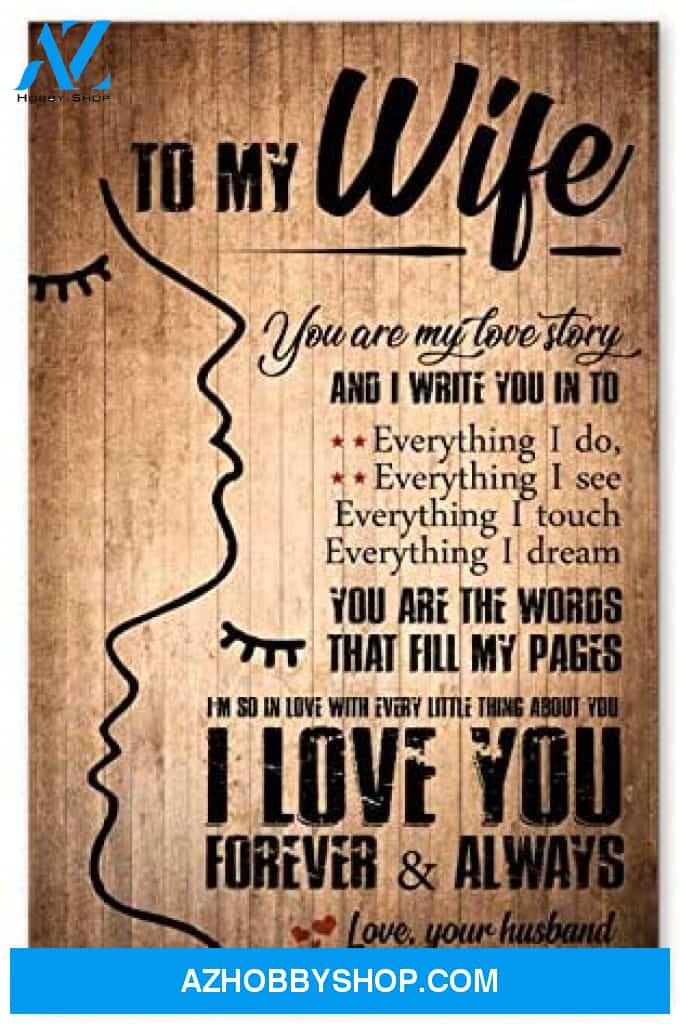 AZ
HOBBY SHOP
TO MY Wife
You are my love story
AND I WRITE YOU IN TO
Everything I do,
Everything I see
Everything I touch
Everything I dream
YOU ARE THE WORDS
THAT FILL MY PAGES
I'M SO IN LOVE WITH EVERY LITTLE THING ABOUT YOU
I LOVE YOU
FOREVER & ALWAYS
Love, your husband
AZHOBBYSHOP.COM